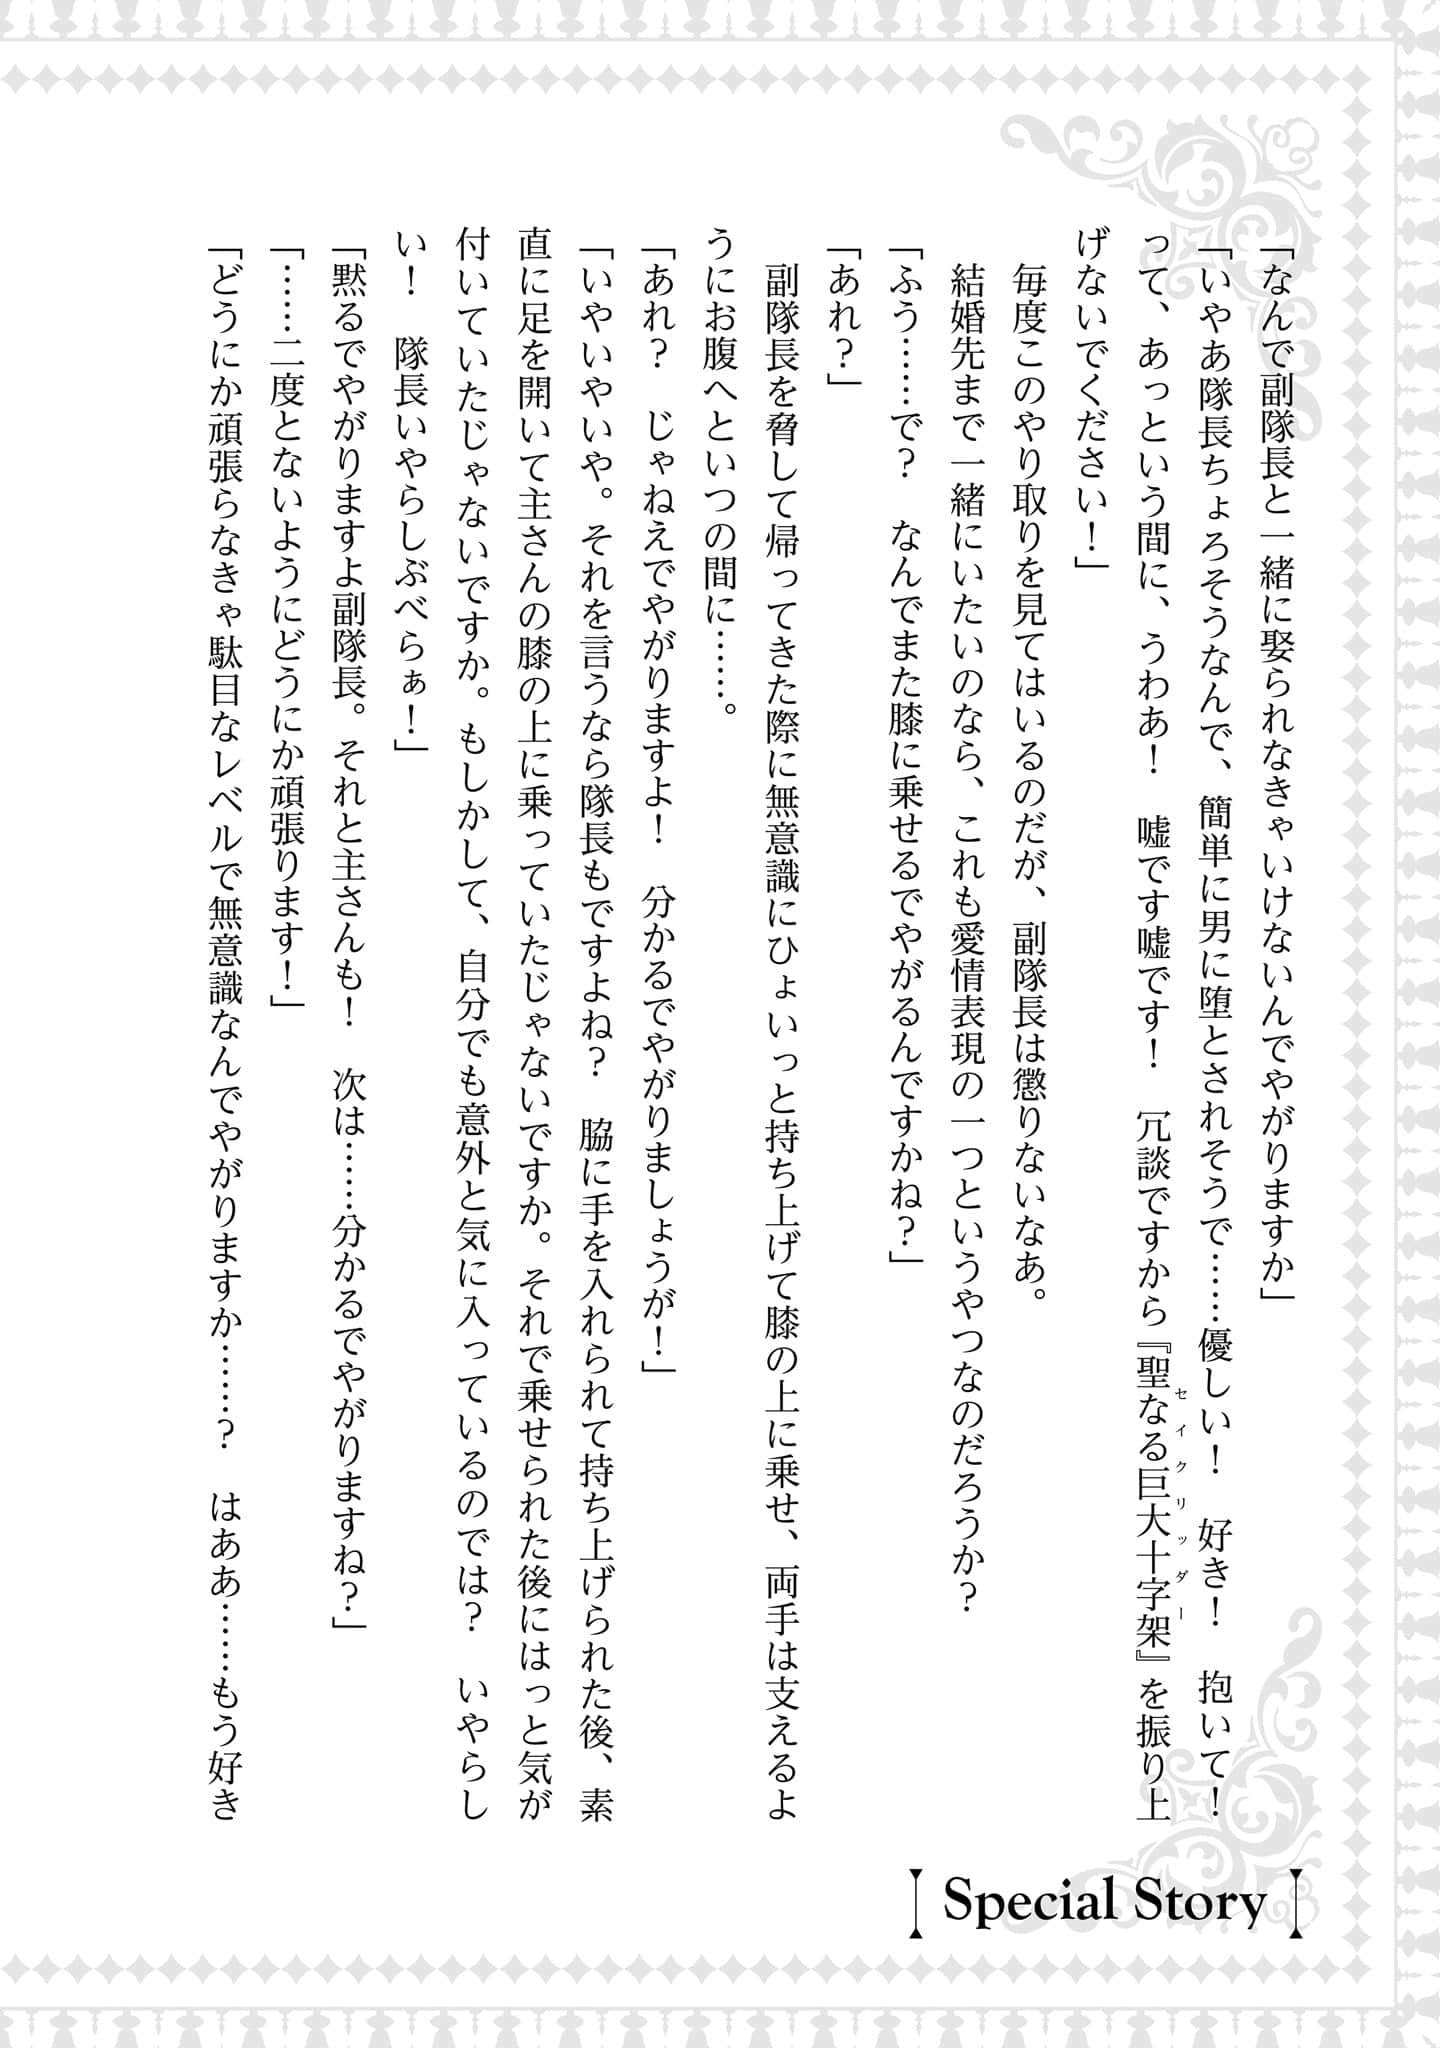 「なんで副隊長と一緒に娶られなきゃいけないんでやがりますか」
「いやあ隊長ちょろそうなんで、簡単に男に堕とされそうで……優しい！　好き！　抱いて！
って、あっという間に、うわあ！　嘘です嘘です！　冗談ですから『聖なる巨大十字架』を振り上
セイクリッダー
げないでください！」
　毎度このやり取りを見てはいるのだが、副隊長は懲りないなあ。
　結婚先まで一緒にいたいのなら、これも愛情表現の一つというやつなのだろうか？
「ふう……で？　なんでまた膝に乗せるでやがるんですかね？」
「あれ？」
　副隊長を脅して帰ってきた際に無意識にひょいっと持ち上げて膝の上に乗せ、両手は支えるよ
うにお腹へといつの間に……。
「あれ？　じゃねえでやがりますよ！　分かるでやがりましょうが！」
「いやいやいや。それを言うなら隊長もですよね？　脇に手を入れられて持ち上げられた後、素
直に足を開いて主さんの膝の上に乗っていたじゃないですか。それで乗せられた後にはっと気が
付いていたじゃないですか。もしかして、自分でも意外と気に入っているのでは？　いやらし
い！　隊長いやらしぶべらぁ！」
「黙るでやがりますよ副隊長。それと主さんも！　次は……分かるでやがりますね？」
「……二度とないようにどうにか頑張ります！」
「どうにか頑張らなきゃ駄目なレベルで無意識なんでやがりますか……？　はああ……もう好き
Special Story